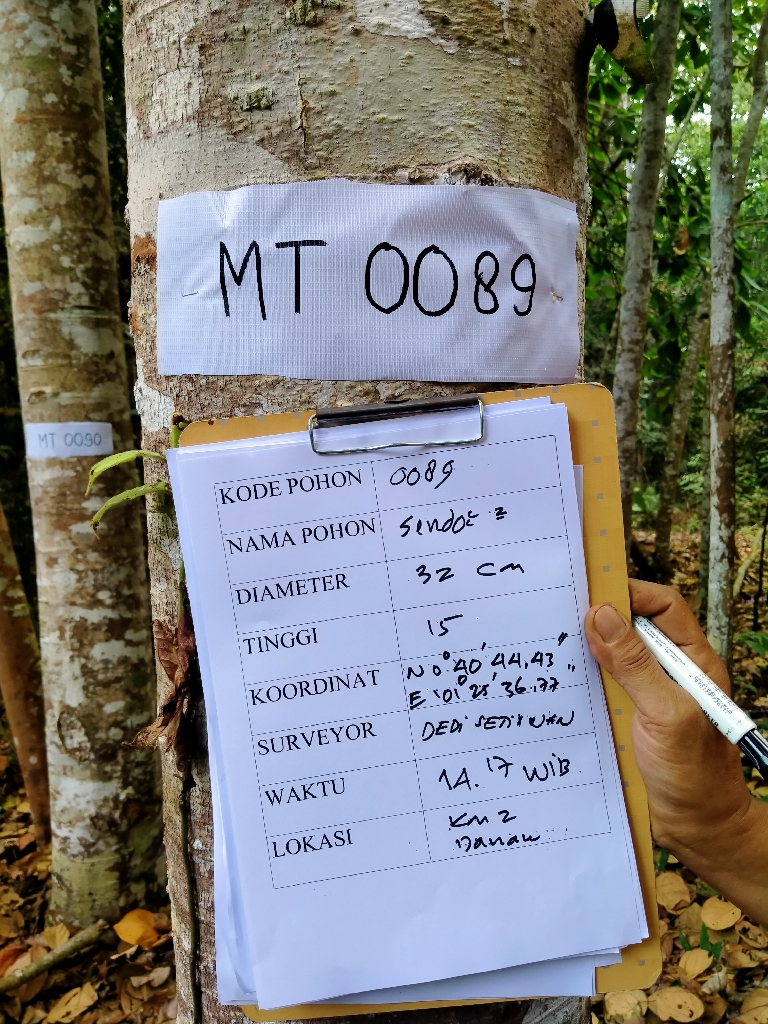 MT 0089
MT 0090
KODE POHON 0089
NAMA POHON
DIAMETER 32 cm
TINGGI 15
KOORDINAT N 0° 40' 44,43"
E 101° 25' 36.77"
SURVEYOR DEDI SETIAWAN
WAKTU 14.17 WIB
LOKASI KM 2
Danau